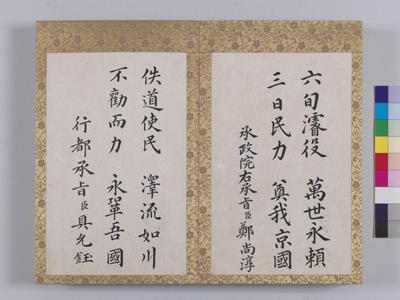 六旬濬役 萬世永賴
三日民力 奠我京國
承政院右承旨臣鄭尚淳
佚道使民 澤流如川
不勸而力 永鞏吾國
行都承旨臣具允鈺